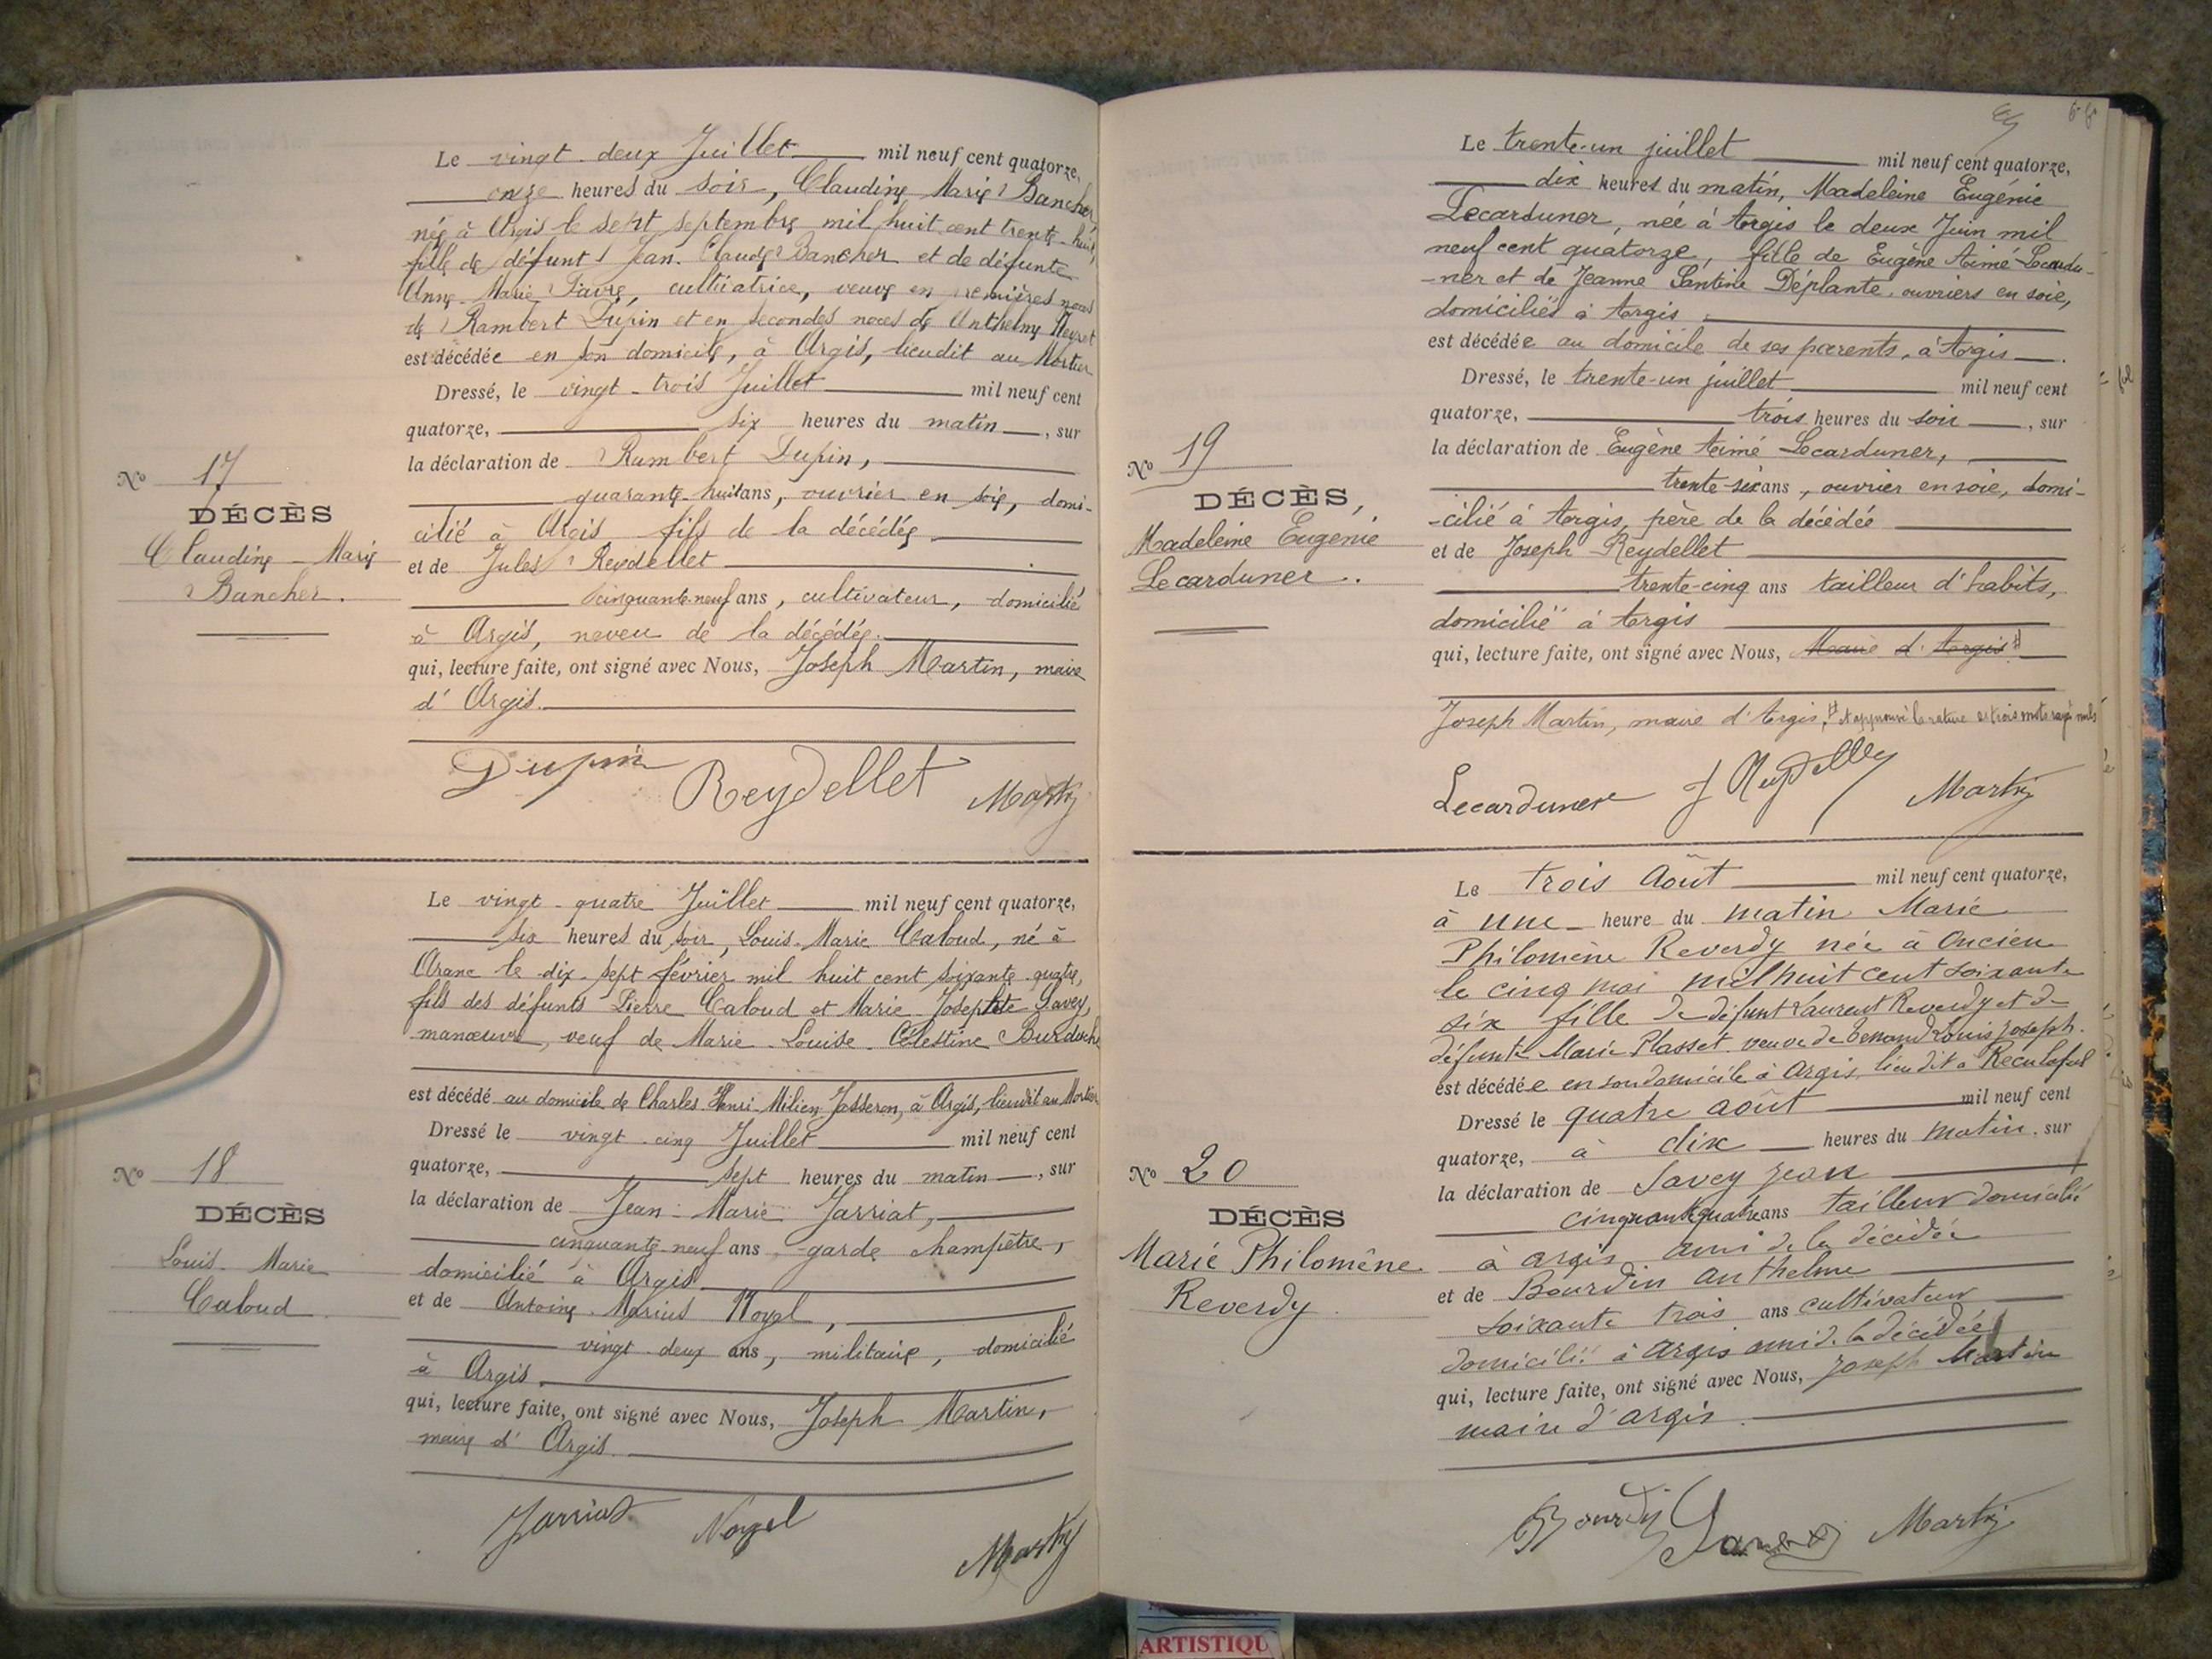 Le vingt-deux Juillet mil neuf cent quatorze,
onze heures du soir, Claudine Marie Bancher,
née à Argis le sept septembre mil huit cent trente-huit,
fille de défunt Jean-Claude Bancher et de défunte
Anne-Marie Favre, cultivatrice, veuve en premières noces
de Rambert Dupin et en secondes noces de Anthelme
est décédée en son domicile, à Argis, lieudit au Mortier
Dressé, le vingt-trois Juillet mil neuf cent
quatorze, six heures du matin, sur
la déclaration de Rambert Dupin,
quarante-huit ans, ouvrier en soie, domi-
cilié à Argis fils de la décédée
et de Jules Reydellet
cinquante-neuf ans, cultivateur, domicilié
à Argis, neveu de la décédée.
qui, lecture faite, ont signé avec Nous, Joseph Martin, maire
d'Argis.
No 17
DÉCÈS
Claudine-Marie
Bancher.
Dupin Reydellet Martin
Le vingt-quatre Juillet mil neuf cent quatorze,
six heures du soir, Louis-Marie Caloud, né à
Aranc le dix-sept février mil huit cent soixante-quatre,
fils des défunts Pierre Caloud et Marie-Josephte Savey,
manœuvre, veuf de Marie-Louise-Célestine
est décédé au domicile de Charles-Henri-Milien Jasseron, à Argis, lieudit au Mortier
Dressé le vingt-cinq Juillet mil neuf cent
quatorze, sept heures du matin, sur
la déclaration de Jean-Marie Jarriat,
cinquante-neuf ans garde champêtre,
domicilié à Argis
et de Antoine-Marius Noyel,
vingt-deux ans, militaire, domicilié
à Argis.
qui, lecture faite, ont signé avec Nous, Joseph Martin,
maire d'Argis.
No 18
DÉCÈS
Louis-Marie
Caloud.
Jarriat Noyel Martin
Le trente-un juillet mil neuf cent quatorze,
dix heures du matin, Madeleine Eugénie
Lecarduner, née à Argis le deux Juin mil
neuf cent quatorze, fille de Eugène Aimé Lecardu-
-ner et de Jeanne Santine Déplante, ouvriers en soie,
domiciliés à Argis
est décédée au domicile de ses parents, à Argis.
Dressé, le trente-un juillet mil neuf cent
quatorze, trois heures du soir, sur
la déclaration de Eugène Aimé Lecarduner,
trente-six ans, ouvrier en soie, domi-
-cilié à Argis, père de la décédée
et de Joseph Reydellet
trente-cinq ans tailleur d'habits,
domicilié à Argis
qui, lecture faite, ont signé avec Nous, Maire d'Argis #
Joseph Martin, maire d'Argis, # et approuvé la rature et trois mots rayés nuls
No 19
DÉCÈS,
Madeleine Eugénie
Lecarduner.
Lecarduner J Reydellet Martin
Le trois Août mil neuf cent quatorze,
à une heure du matin Marie
Philomène Reverdy née à Oncieu
le cinq mai mil huit cent soixante
six fille de défunt Laurent Reverdy et de
défunte Marie Plasset veuve de Louis Joseph.
est décédée en son domicile à Argis, lieu dit à Reculafol
Dressé le quatre août mil neuf cent
quatorze, à dix heures du matin, sur
la déclaration de Savey Jean
cinquante quatre ans tailleur domicilié
à argis ami de la décédée
et de Bourdin Anthelme
soixante trois ans cultivateur
domicilié à Argis ami de la décédée
qui, lecture faite, ont signé avec Nous, Joseph Martin
maire d'argis.
No 20
DÉCÈS
Marie Philomène
Reverdy.
Bourdin Savey Martin
ARTISTIQU